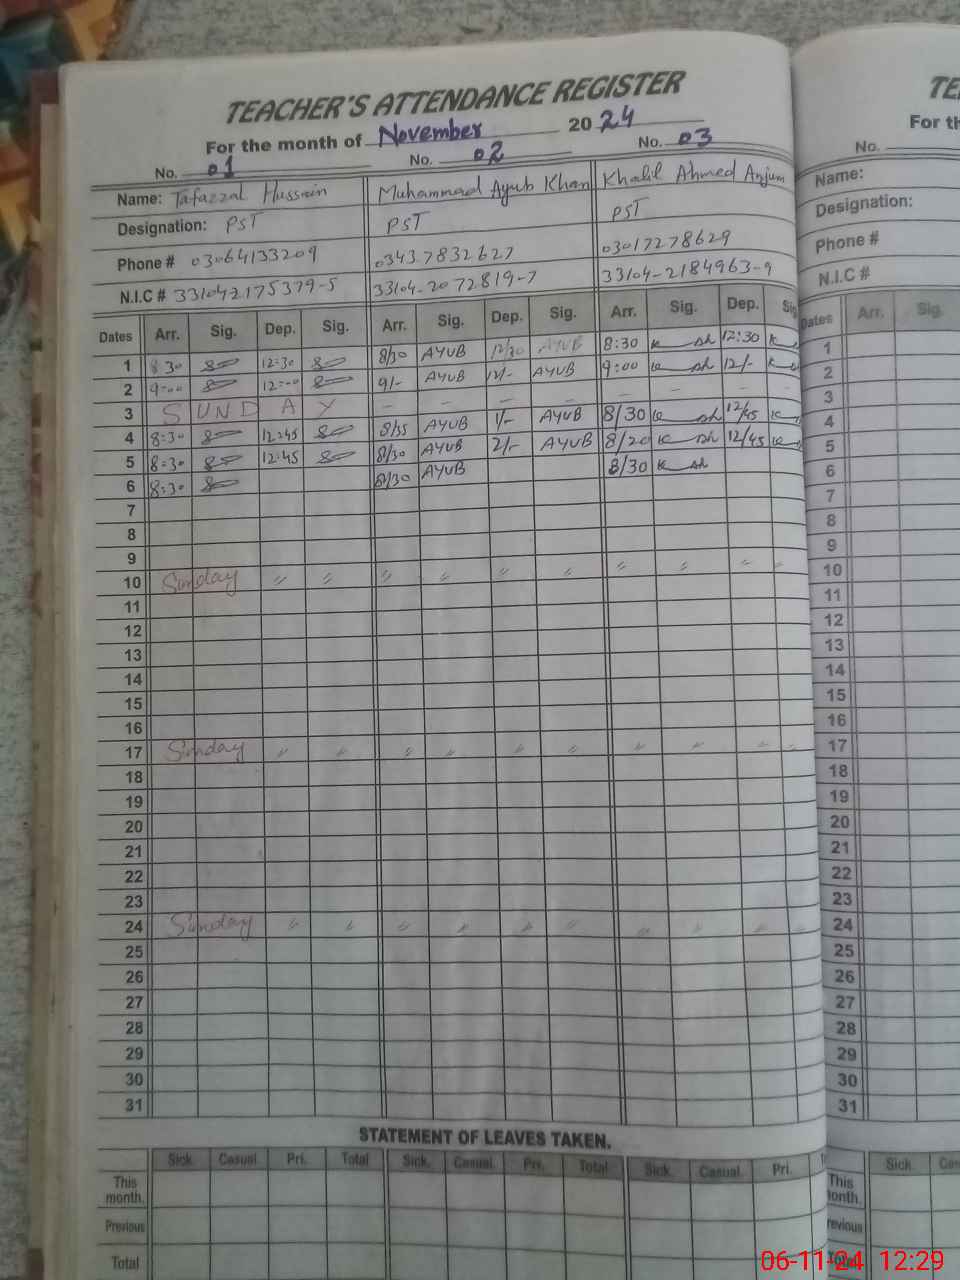 TEACHER'S ATTENDANCE REGISTER
For the month of November 2024
No. 01 No. 02 No. 03
Name: Tafazzal Hussain Muhammad Ayub Khan Khalil Ahmed Anjum
Designation: PST PST PST
Phone # 03064133209 03437832627 03017278629
N.I.C # 331042175379-5 33104-2072819-7 33104-2184963-9
Dates Arr. Sig. Dep. Sig. Arr. Sig. Dep. Sig. Arr. Sig. Dep. Sig
1 8:30 12:30 8/30 AYUB 12/30 AYUB 8:30 12:30
2 9:00 12:00 9/- AYUB 12/- AYUB 9:00 12/-
3 SUNDAY - - - - - - -
4 8:30 12:45 8/35 AYUB 1/- AYUB 8/30 12/45
5 8:30 12:45 8/30 AYUB 2/- AYUB 8/20 12/45
6 8:30 8/30 AYUB 8/30
7
8
9
10 Sunday " " " " " " " " " "
11
12
13
14
15
16
17 Sunday " " " " " " " " " "
18
19
20
21
22
23
24 Sunday " " " " " " " " " "
25
26
27
28
29
30
31
STATEMENT OF LEAVES TAKEN.
Sick. Casual. Pri. Total Sick. Casual. Pri. Total Sick. Casual. Pri.
This month.
Previous
Total
TE
For th
No.
Name:
Designation:
Phone #
N.I.C #
Dates Arr. Sig.
1
2
3
4
5
6
7
8
9
10
11
12
13
14
15
16
17
18
19
20
21
22
23
24
25
26
27
28
29
30
31
Sick. Cas
This
month.
revious
Total
06-11-24 12:29